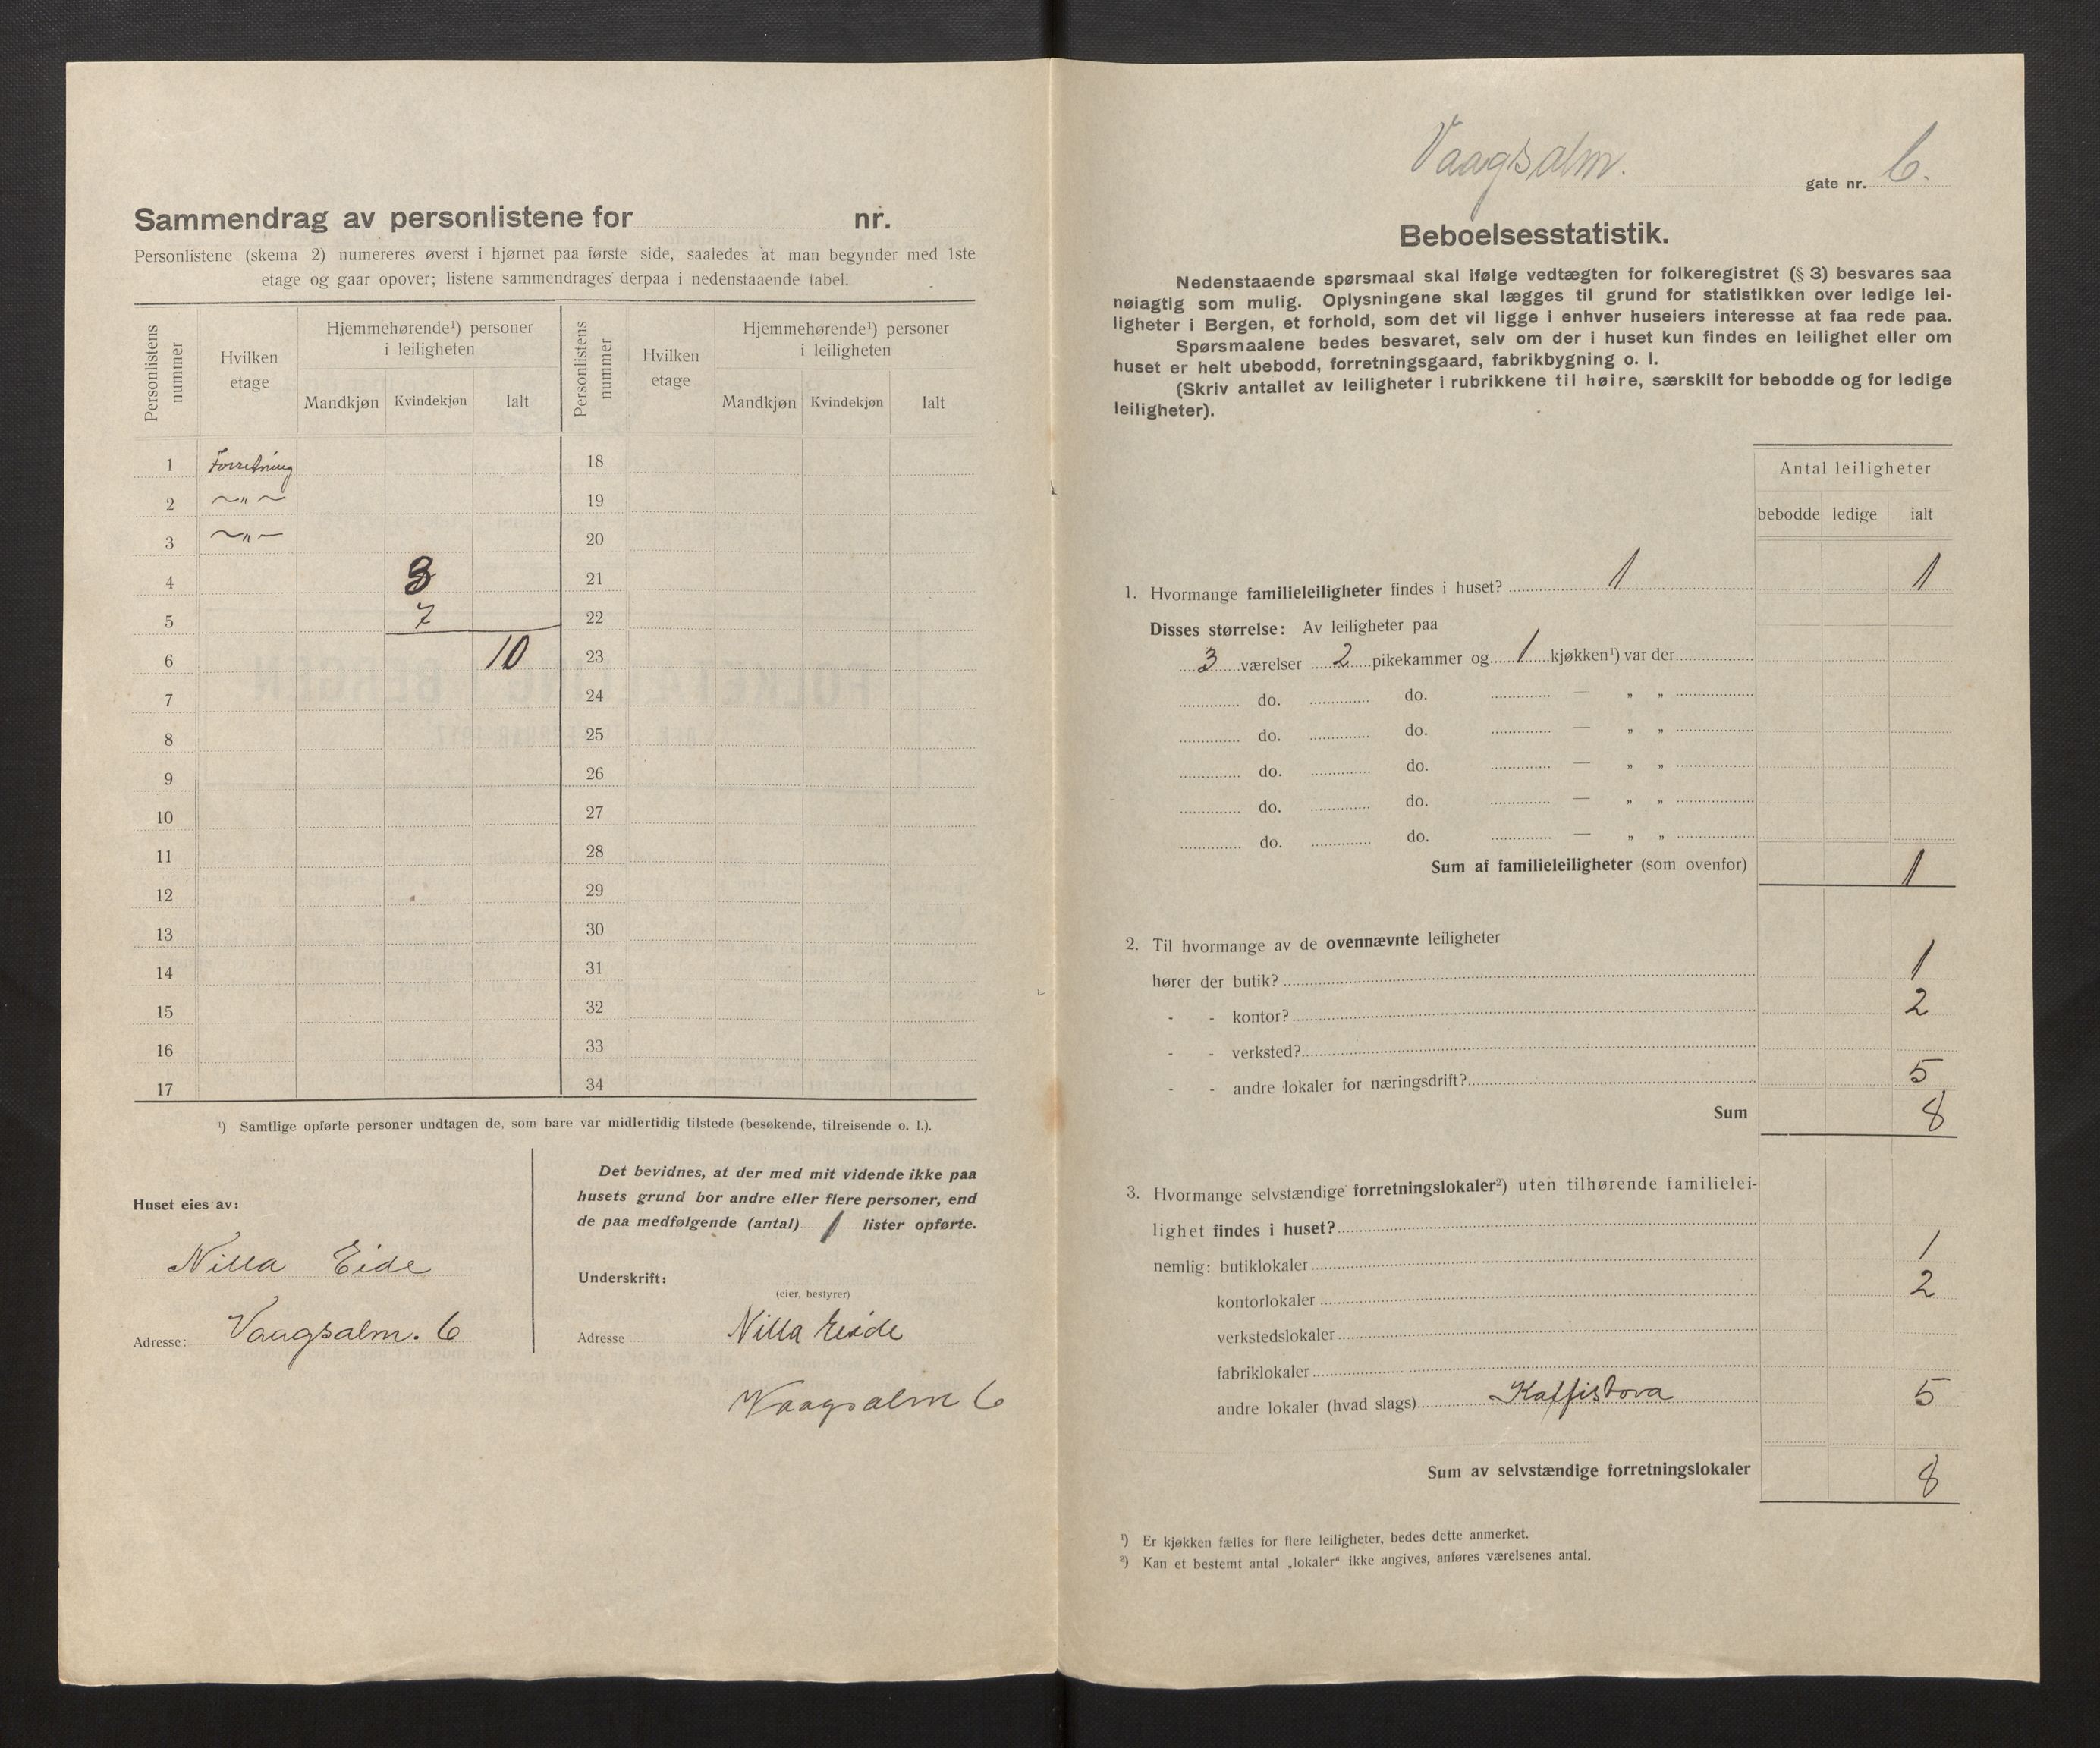 Sammendrag av personlistene for nr.
Personlistene (skema 2) numereres øverst i hjørnet paa første side, saaledes at man begynder med 1ste
etage og gaar opover; listene sammendrages derpaa i nedenstaaende tabel.
Personlistens nummer Hvilken etage Hjemmehørende¹) personer i leiligheten Personlistens nummer Hvilken etage Hjemmehørende¹) personer i leiligheten
Mandkjøn Kvindekjøn Ialt Mandkjøn Kvindekjøn Ialt
1 Forretning 18
2 ~„~ 19
3 ~„~ 20
4 3 21
5 7 22
6 10 23
7 24
8 25
9 26
10 27
11 28
12 29
13 30
14 31
15 32
16 33
17 34
¹) Samtlige opførte personer undtagen de, som bare var midlertidig tilstede (besøkende, tilreisende o. l.).
Huset eies av:
Nilla Eide
Adresse: Vaagsalm. 6
Det bevidnes, at der med mit vidende ikke paa
husets grund bor andre eller flere personer, end
de paa medfølgende (antal) 1 lister opførte.
Underskrift:
(eier, bestyrer)
Adresse Nilla Eide
Vaagsalm 6
Vaagsalm. gate nr. 6.
Beboelsesstatistik.
Nedenstaaende spørsmaal skal ifølge vedtægten for folkeregistret (§ 3) besvares saa
nøiagtig som mulig. Oplysningene skal lægges til grund for statistikken over ledige lei-
ligheter i Bergen, et forhold, som det vil ligge i enhver huseiers interesse at faa rede paa.
Spørsmaalene bedes besvaret, selv om der i huset kun findes en leilighet eller om
huset er helt ubebodd, forretningsgaard, fabrikbygning o. l.
(Skriv antallet av leiligheter i rubrikkene til høire, særskilt for bebodde og for ledige
leiligheter).
Antal leiligheter
bebodde ledige ialt
1. Hvormange familieleiligheter findes i huset? 1 1
Disses størrelse: Av leiligheter paa
3 værelser 2 pikekammer og 1 kjøkken¹) var der
do. do. — „ „
do. do. — „ „
do. do. — „ „
do. do. — „ „
do. do. — „ „
Sum af familieleiligheter (som ovenfor) 1
2. Til hvormange av de ovennævnte leiligheter
hører der butik? 1
- - kontor? 2
- - verksted?
- - andre lokaler for næringsdrift? 5
Sum 8
3. Hvormange selvstændige forretningslokaler²) uten tilhørende familielei-
lighet findes i huset?
nemlig: butiklokaler 1
kontorlokaler 2
verkstedslokaler
fabriklokaler
andre lokaler (hvad slags) Kaffistova 5
Sum av selvstændige forretningslokaler 8
¹) Er kjøkken fælles for flere leiligheter, bedes dette anmerket.
²) Kan et bestemt antal „lokaler“ ikke angives, anføres værelsenes antal.